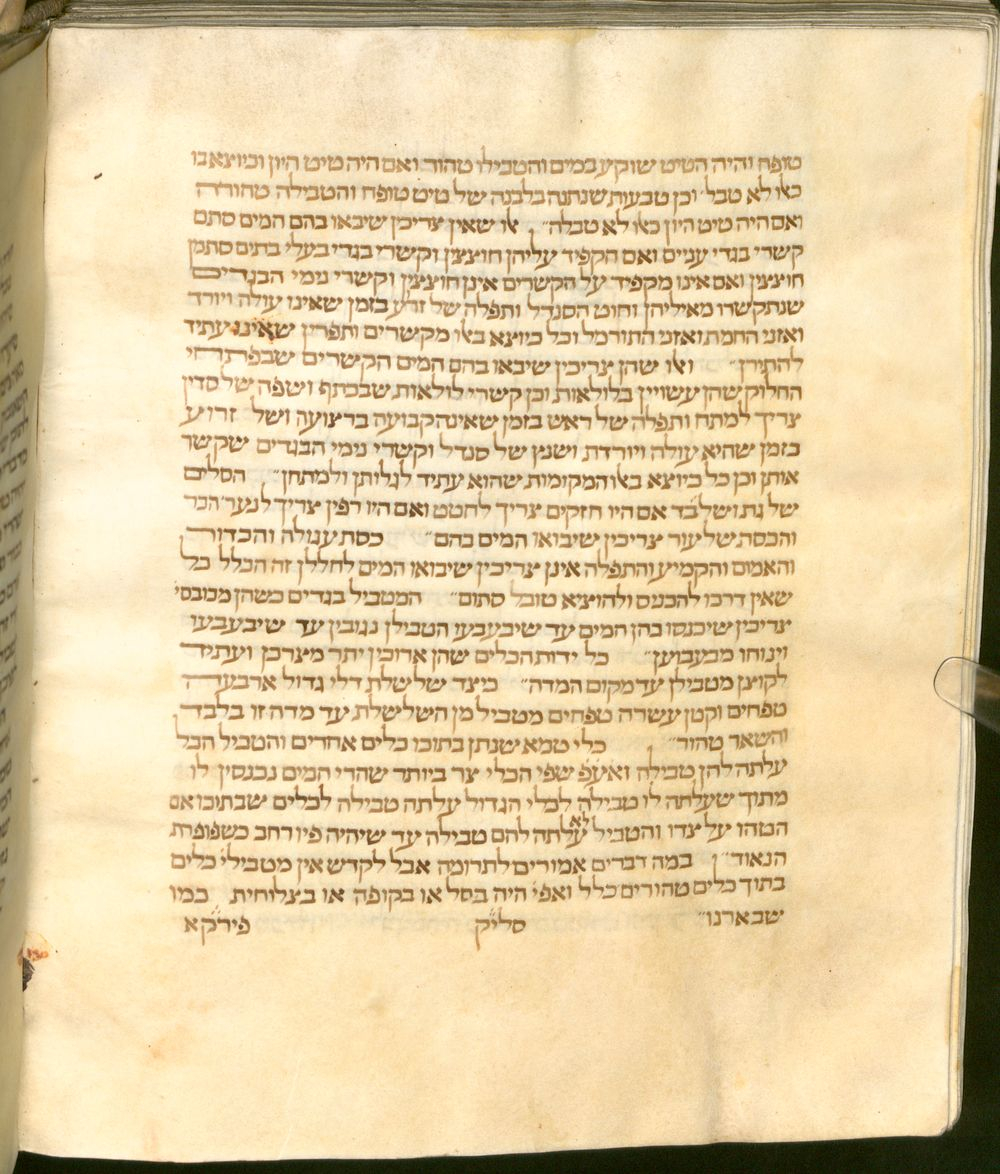 טופח והיה הטיט שוקע במים והטבילו טהור ואם היה טיט היון וכיוצא בו
כאלו לא טבל׳ וכן טבעות שנתנה בלבנה של טיט טופח והטבילה טהורה
ואם היה טיט היון כאלו לא טבלה״ אלו שאין צריכין שיבאו בהם המים סתם
קשרי בגדי עניים ואם הקפיד עליהן חוצצין וקשרי בגדי בעלי בתים סתמן
חוצצין ואם אינו מקפיד על הקשרים אינן חוצצין וקשרי נימי הבגדים
שנתקשרו מאיליהן וחוט הסנדל ותפלה של זרוע בזמן שאינו עולה ויורד
ואזני החמת ואזני התורמל וכל כיוצא באלו מקשרים ותפרין שאינו עתיד
להתירן״ ואלו שהן צריכין שיבאו בהם המים הקשרים שבפרוחי
החלוק שהן עשויין בלולאות וכן קשרי לולאות שבכתף ושפה של סדין
צריך למתח ותפלה של ראש בזמן שאינה קבועה ברצועה ושל זרוע
בזמן שהיא עולה ויורדת ושנץ של סנדל וקשרי נימי הבגדים שקשר
אותן וכן כל כיוצא באלו המקומות שהוא עתיד לגליתן ולמתחן״ הסלים
של גת ושל בד אם היו חזקים צריך לחטט ואם היו רפין צריך לנער הכר
והכסת של עור צריכין שיבואו המים בהם״ כסת עגולה והכדור
והאמום והקמיע והתפלה אינן צריכין שיבואו המים לחללן זה הכלל כל
שאין דרכו להכניס ולהוציא טובל סתום״ המטביל בגדים כשהן מכובסי׳
צריכין שיכנסו בהן המים עד שיבעבעו הטבילן נגובין עד שיבעבעו
וינוחו מבעבוען״ כל ידות הכלים שהן ארוכין יתר מצרכן ועתיד
לקוצן מטבילן עד מקום המדה״ כיצד שלשלת דלי גדול ארבעה
טפחים וקטן עשרה טפחים מטביל מן השלשלת עד מדה זו בלבד
והשאר טהור״ כלי טמא שנתן בתוכו כלים אחרים והטביל הכל
עלתה להן טבילה ואע״פ שפי הכלי צר ביותר שהרי המים נכנסין לו
מתוך שעלתה לו טבילה לכלי הגדול עלתה טבילה לכלים שבתוכו אם
הטהו על צדו והטביל לא עלתה להם טבילה עד שיהיה פיו רחב כשפופרת
הנאוד״ במה דברים אמורים לתרומה אבל לקדש אין מטבילי׳ כלים
בתוך כלים טהורים כלל ואפי׳ היה בסל או בקופה או בצלוחית כמו
שבארנו״ סליק פירקא